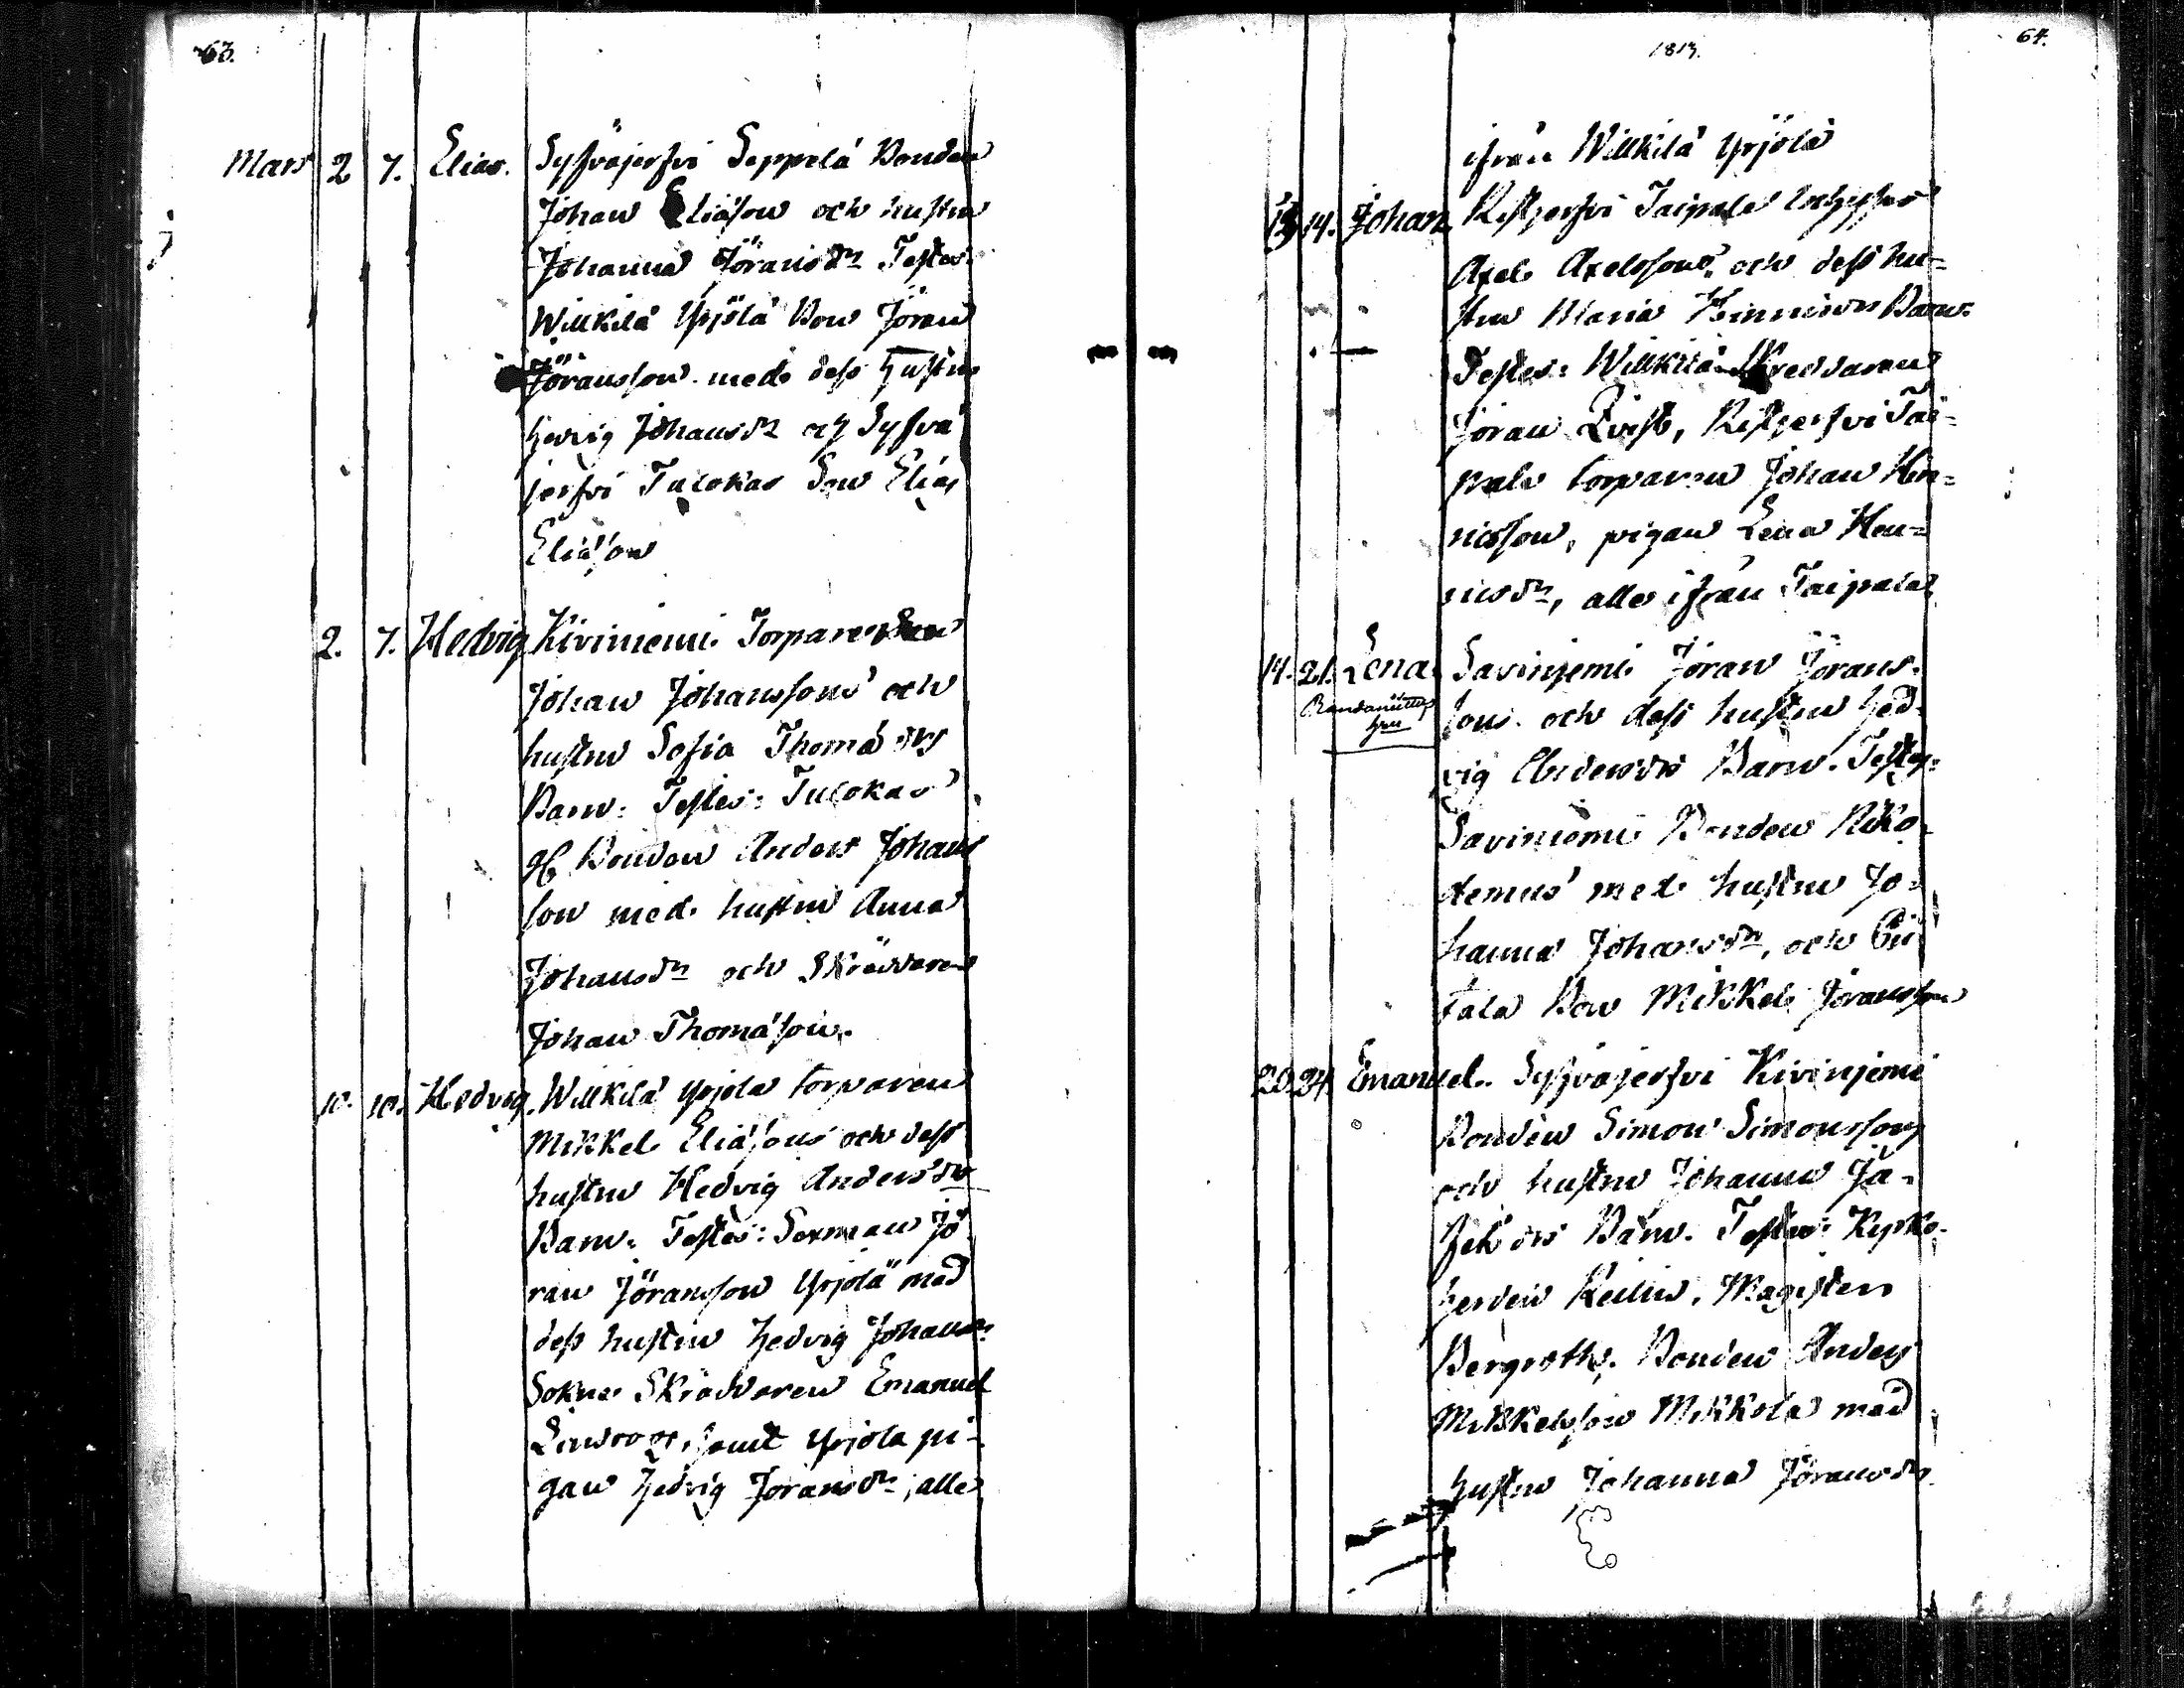 63.
Mars 2 7. Elias. Syfväjerfvi Seppelä Bonden
Johan Eliæson och hustru
Johanna Jöransdr Testes
Willkilä Yrjölä Bon Jöran
Jöransson med dess hustru
Hedvig Johansdr och Syfvä
jerfvi Tulokas Son Elias
Eliæson
2. 7. Hedvig Kiviniemi Torparen
Johan Johanssons och
hustru Sofia Thomædrs
Barn. Testes: Tulokas
Bonden Anders Johans
son med hustru Anna
Johansdr och Skräddaren
Johan Thomæson.
10. 10. Hedvig. Willkilä Yrjola torparen
Mikkel Eliæsons och dess
hustru Hedvig Andersdrs
Barn. Testes: Sexman Jö
ran Jöransson Yrjölä med
dess hustru Hedvig Johansdr
Sokne Skräddaren Emanuel
Lindroos, samt Yrjola pi-
gan Hedvig Joransdr, alla
1813.
64.
ifrån Willkilä Yrjölä
13 14. Johan Ristjerfvi Taipale
Axel Axelssons och dess hu=
stru Maria Hinricsdrs Barn.
Testes: Willkilä Skreddaren
Jöran Qvist, Ristjerfvi Tai=
pale torparen Johan Hin=
ricsson, pigan Lena Hen=
ricsdr, alla ifrån Taipale
14. 21. Lena Savinjemi Jöran Jörans-
sons och dess hustru Hed-
vig Andersdrs Barn. Testes:
Saviniemi Bonden Niko-
demus med hustru Jo-
hanna Johansdr, och
tala Bon Mikkel Joransson
20. 24. Emanuel. Syfväjerfvi Kivinjemi
Bonden Simon Simonssons
och hustru Johanna Ja-
Barn. Testes: Kyrko-
herden Reilin, Magister
Bergroth, Bonden Anders
Mikkelsson Mikkola med
hustru Johanna Jöransdr